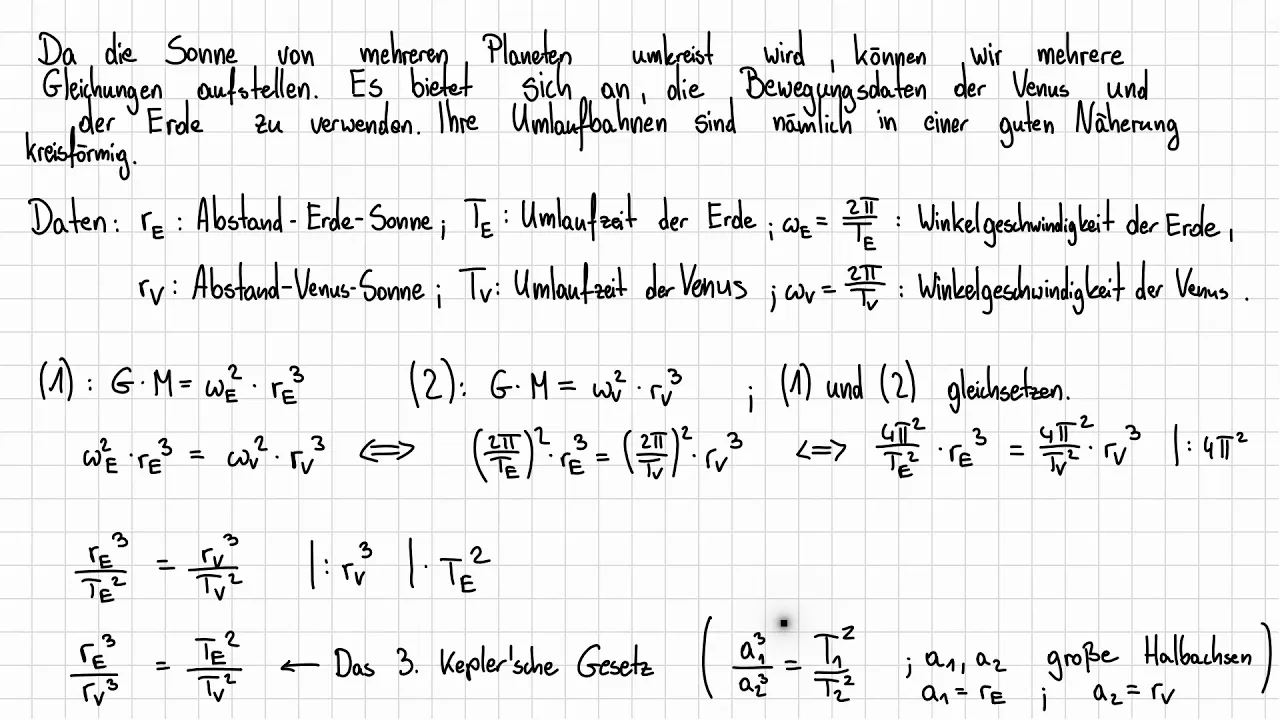 Da die Sonne von mehreren Planeten umkreist wird, können wir mehrere
Gleichungen aufstellen. Es bietet sich an, die Bewegungsdaten der Venus und
der Erde zu verwenden. Ihre Umlaufbahnen sind nämlich in einer guten Näherung
kreisförmig.
Daten: r_E : Abstand-Erde-Sonne; T_E : Umlaufzeit der Erde; ω_E = 2π/T_E : Winkelgeschwindigkeit der Erde,
r_V : Abstand-Venus-Sonne; T_V : Umlaufzeit der Venus; ω_V = 2π/T_V : Winkelgeschwindigkeit der Venus.
(1): G·M = ω_E² · r_E³ (2): G·M = ω_V² · r_V³ ; (1) und (2) gleichsetzen.
ω_E² · r_E³ = ω_V² · r_V³ ⟺ (2π/T_E)² · r_E³ = (2π/T_V)² · r_V³ ⟺ 4π²/T_E² · r_E³ = 4π²/T_V² · r_V³ |: 4π²
r_E³/T_E² = r_V³/T_V² |: r_V³ |· T_E²
r_E³/r_V³ = T_E²/T_V² ← Das 3. Kepler'sche Gesetz ( a_1³/a_2³ = T_1²/T_2² ; a_1, a_2 große Halbachsen )
a_1 = r_E ; a_2 = r_V